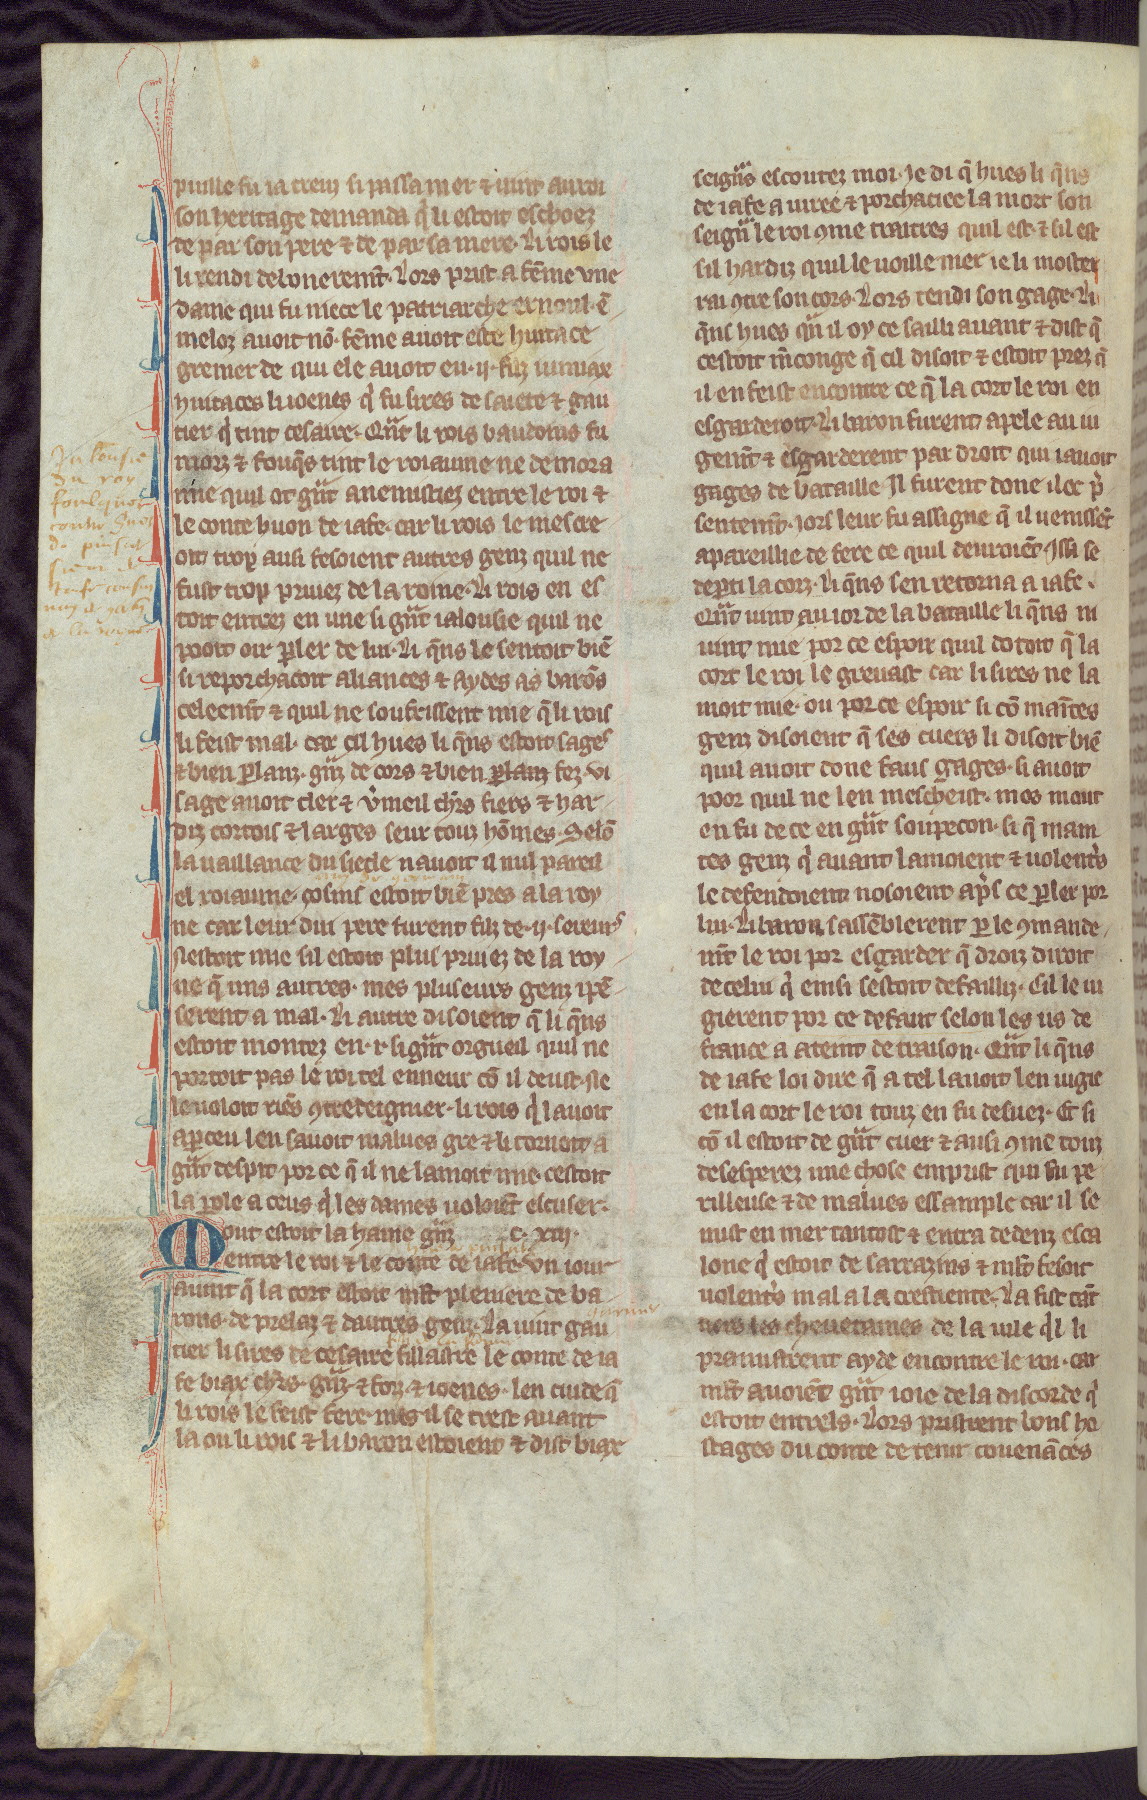 puille fu ia creuz si passa mer & uint au roi
son heritage demanda q̉ li estoit escheoez
de par son pere & de par sa mere. Li rois le
li rendi debonerem̃t. Lors prist a fẽme vne
dame qui fu niece le patriarche ernoul. ẽ
meloz auoit nõ. fẽme auoit este huitace
grenier de qui ele auoit eu .ij. filz iumiax
huitaces li ioenes q̉ fu sires de saiete & gau
tier q̉ tint cesaire. Qũt li rois baudoins fu
morz & fouq̃s tint le roiaume ne demora
mie quil ot gr̃t anemistiez entre le roi &
le conte huon de iafe. car li rois le mescre
oit trop ausi fesoient autres genz quil ne
fust trop priuez de la roine. Li rois en es
toit entrez en une si gr̃t ialousie quil ne
pooit oir p̲ler de lui. Li q̃ns le sentoit biẽ
si reporchacoit aliances & aydes as barõs
celeem̃t & quil ne soufrissent mie q̃ li rois
li feist mal. car cil hues li q̃ns estoit sages
& bien p̲lanz. gr̃z de cors & bien p̲lanz fez. vi
sage auoit cler & v̉meil ch̃rs fiers & har
diz cortois & larges seur touz hõmes. Selõ
la uaillance du siecle nauoit il nul pareil
el roiaume. cosins estoit biẽ pres a la roy
ne car leur dui pere furent filz de .ij. sereurs
nestoit mie sil estoit plus priuez de la roy
ne q̃ uns autres. mes pluseurs genz i pẽ
serent a mal. Li autre disoient q̃ li q̃ns
estoit montez en .i. si gr̃t orgueil quil ne
portoit pas le roi tel enneur cõ il deust. ne
le uoloit riẽs 9tredeignier. li rois q̉ lauoit
ap̲ceu len sauoit malues gre & li tornoit a
gr̃t despit por ce q̃ il ne lamoit mie. cestoit
la p̲ole a ceus q̉ les dames uoloiẽt escuser.
Mout estoit la haine gr̃z c. xiij.
entre le roi & le conte de iafe. Vn iour
auint q̃ la cort estoit m̃lt pleniere de ba
rons. de prelaz & dautres genz. La uint gau
tier li sires de cesaire fillastre le conte de ia
fe biax ch̃rs. gr̃z & forz & ioenes. len cuide q̃
li rois le feist fere. mes il se trest auant
la ou li rois & li baron estoient & dist biax
seigñs escoutez moi. Je di q̃ hues li q̃ns
de iafe a iuree & porchaciee la mort son
seigñ le roi 9me traitres quil est. & sil est
sil hardiz quil le uoille nier ie li moster
rai 9tre son cors. Lors tendi son gage. Li
q̃ns hues qñ il oy ce sailli auant & dist q̃
cestoit m̃conge q̃ cil disoit & estoit prez q̃
il en feist encontre ce q̃ la cort le roi en
esgarderoit. Li baron furent apele au iu
gem̃t & esgarderent par droit qui i auoit
gages de bataille. Il furent done ilec p̲̉
sentem̃t. iors leur fu assigne q̃ il uenissẽt
apareillie de fere ce quil deuroiẽt. Issi se
dep̲ti la corz. Li q̃ns sen retorna a iafe.
Qũt uint au ior de la bataille li q̃ns ni
uint mie por ce espoir quil dotoit q̃ la
cort le roi le greuast car li sires ne la
moit mie. ou por ce espoir si cõ maĩtes
genz disoient q̃ ses cuers li disoit biẽ
quil auoit done faus gages. si auoit
poor quil ne len mescheist. mes mout
en fu de ce en gr̃t soupecon. si q̃ main
tes genz q̉ auant lamoient & uolent̉s
le defendoient nosoient ap̉s ce p̲ler por
lui. Li baron sassẽblerent p̲ le 9mande
m̃t le roi por esgarder q̃ droiz diroit
de celui q̉ einsi sestoit defailliz. Cil le iu
gierent por ce defaut selon les us de
france a ateint de traison. Qũt li q̃ns
de iafe loi dire q̃ a tel lauoit len iugie
en la cort le roi touz en fu desuez. Et si
cõ il estoit de gr̃t cuer & ausi 9me touz
desesperez une chose emprist qui fu pe
rilleuse & de malues essample car il se
mist en mer tantost & entra dedenz esca
lone q̉ estoit de sarrazins & m̃lt fesoit
uolent̉s mal a la crestiente. La fist tãt
uers les cheuetaines de la uile q̉l li
pramistrent ayde encontre le roi. car
m̃lt auoiẽt gr̃t ioie de la discorde q̉
estoit entrels. Lors pristrent bons ho
stages du conte de tenir couenãces
Jalousie
du roy
foulques
contre hues